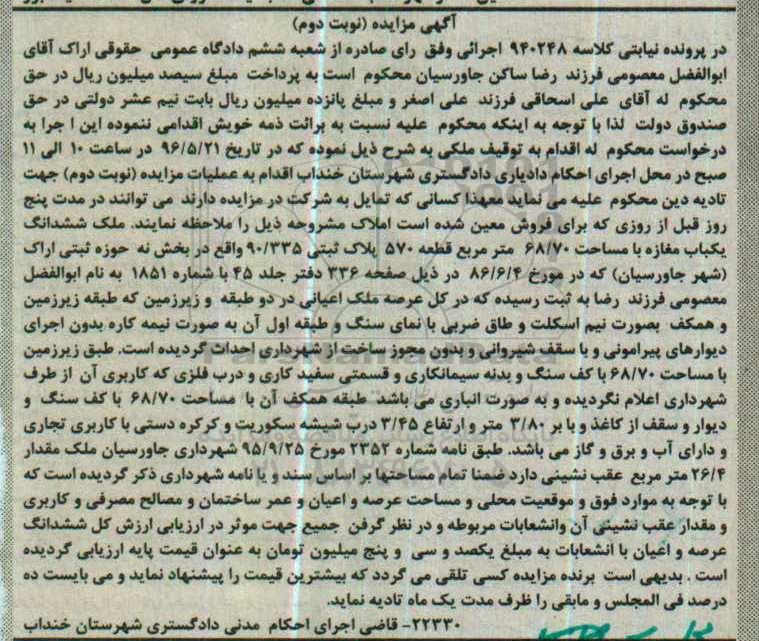 آگهی مزایده (نوبت دوم)
در پرونده نیابتی کلاسه ۹۴۰۲۴۸ اجرائی وفق رای صادره از شعبه ششم دادگاه عمومی حقوقی اراک آقای
ابوالفضل معصومی فرزند رضا ساکن جاورسیان محکوم است به پرداخت مبلغ سیصد میلیون ریال در حق
محکوم له آقای علی اسحاقی فرزند علی اصغر و مبلغ پانزده میلیون ریال بابت نیم عشر دولتی در حق
صندوق دولت لذا با توجه به اینکه محکوم علیه نسبت به برائت ذمه خویش اقدامی ننموده این ا جرا به
درخواست محکوم له اقدام به توقیف ملکی به شرح ذیل نموده که در تاریخ ۹۶/۵/۲۱ در ساعت ۱۰ الی ۱۱
صبح در محل اجرای احکام دادیاری دادگستری شهرستان خنداب اقدام به عملیات مزایده (نوبت دوم) جهت
تادیه دین محکوم علیه می نماید معهذا کسانی که تمایل به شرکت در مزایده دارند می توانند در مدت پنج
روز قبل از روزی که برای فروش معین شده است املاک مشروحه ذیل را ملاحظه نمایند. ملک ششدانگ
یکباب مغازه با مساحت ۶۸/۷۰ متر مربع قطعه ۵۷۰ پلاک ثبتی ۹۰/۳۳۵ واقع در بخش نه حوزه ثبتی اراک
(شهر جاورسیان) که در مورخ ۸۶/۶/۴ در ذیل صفحه ۳۳۶ دفتر جلد ۴۵ با شماره ۱۸۵۱ به نام ابوالفضل
معصومی فرزند رضا به ثبت رسیده که در کل عرصه ملک اعیانی در دو طبقه و زیرزمین که طبقه زیرزمین
و همکف بصورت نیم اسکلت و طاق ضربی با نمای سنگ و طبقه اول آن به صورت نیمه کاره بدون اجرای
دیوارهای پیرامونی و با سقف شیروانی و بدون مجوز ساخت از شهرداری احداث گردیده است. طبق زیرزمین
با مساحت ۶۸/۷۰ با کف سنگ و بدنه سیمانکاری و قسمتی سفید کاری و درب فلزی که کاربری آن از طرف
شهرداری اعلام نگردیده و به صورت انباری می باشد طبقه همکف آن با مساحت ۶۸/۷۰ با کف سنگ و
دیوار و سقف از کاغذ و با بر ۳/۸۰ متر و ارتفاع ۳/۴۵ درب شیشه سکوریت و کرکره دستی با کاربری تجاری
و دارای آب و برق و گاز می باشد. طبق نامه شماره ۲۳۵۲ مورخ ۹۵/۹/۲۵ شهرداری جاورسیان ملک مقدار
۲۶/۴ متر مربع عقب نشینی دارد ضمنا تمام مساحتها بر اساس سند و یا نامه شهرداری ذکر گردیده است که
با توجه به موارد فوق و موقعیت محلی و مساحت عرصه و اعیان و عمر ساختمان و مصالح مصرفی و کاربری
و مقدار عقب نشینی آن وانشعابات مربوطه و در نظر گرفن جمیع جهت موثر در ارزیابی ارزش کل ششدانگ
عرصه و اعیان با انشعابات به مبلغ یکصد و سی و پنج میلیون تومان به عنوان قیمت پایه ارزیابی گردیده
است . بدیهی است برنده مزایده کسی تلقی می گردد که بیشترین قیمت را پیشنهاد نماید و می بایست ده
درصد فی المجلس و مابقی را ظرف مدت یک ماه تادیه نماید.
۲۲۳۳۰- قاضی اجرای احکام مدنی دادگستری شهرستان خنداب